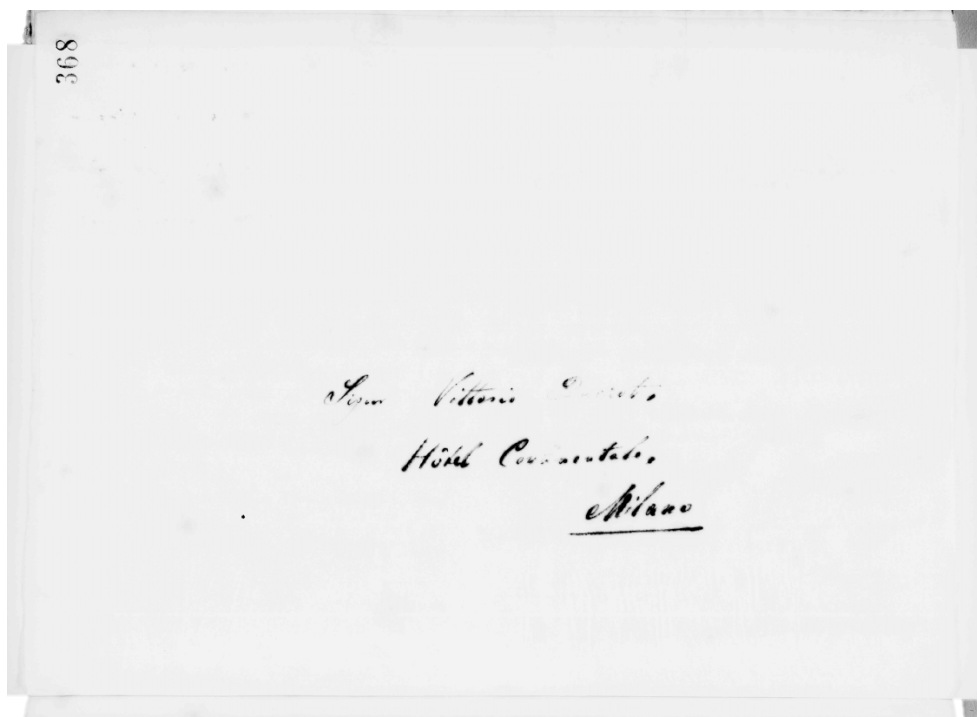 368
Signor Vittorio
Hôtel Continentale.
Milano